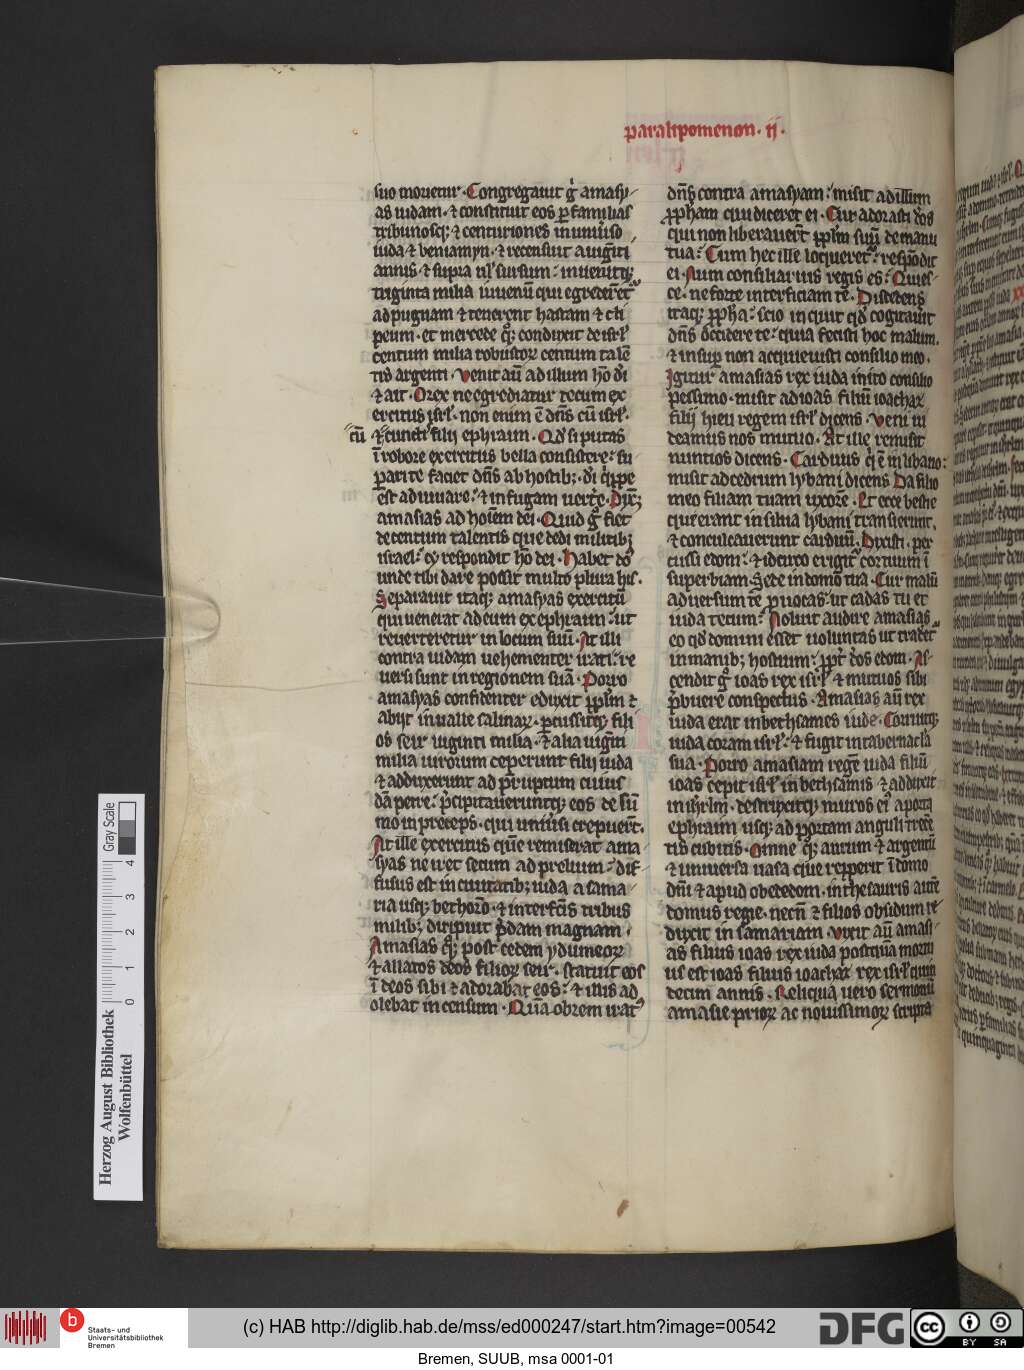 paralipomenon · ij ·
suo morietur · Congregauit g̾ amasy-
as iudam · ⁊ constituit eos ꝑ familias
tribunosq; ⁊ centuriones in uniu̾so
iuda ⁊ beniamyn · ⁊ recensuit a uiginti
annis · ⁊ supra
triginta milia iuuenū qui egrederēt̾
ad pugnam ⁊ tenerent hastam ⁊ cli
peum · et mercede q̾q; conduxit de isrl̾
centum milia robustoꝝ centum talē
tis argenti · Venit aū ad illum hō d̾i
⁊ ait · O rex ne egrediatur tecum ex
ercitus isrl̾ · non enim ē dn̄s cū isrl̾ ·
cū ⁊ cunctis filij ephraim · Qd̾ si putas
ī robore exercitus bella consistere · su
parite faciet dn̄s ab hostib; · d̾i q̾ppe
est adiuuare · ⁊ in fugam uert̾e · Dix̄
amasias ad hoīem dei · Quid g̾ fiet
de centum talentis que dedi militib;
israel · ⁊ respondit hō dei · Habet dō
unde tibi dare possit multo plura his ·
Separauit itaq; amasyas exercitū
qui uenerat ad eum ex ephraim · ut
reuerteretur in locum suū · At illi
contra iudam uehementer irati · re
uersi sunt in regionem suā · Porro
amasyas confidenter eduxit ppl̄m ⁊
abijt in ualle salinaꝝ · ꝑcussitq; fili
os seir uiginti milia · ⁊ alia uiginti
milia uirorum ceperunt filij iuda
⁊ adduxerunt ad p̾ruptum cuius
dā petre · p̾cipitaueruntq; eos de sū
mo in preceps · qui uniu̾si crepuerūt ·
At ille exercitus quē remiserat ama
syas ne iret secum ad prelium · dif
fusus est in ciuitatib; iuda a sama
ria usq; bethorō · ⁊ interfc̄is tribus
milib; diripuit p̾dam magnam ·
Amasias q̾q; post cedem ydumeoꝝ
⁊ allatos deos filioꝝ seir · statuit eos
ī deos sibi ⁊ adorabat eos · ⁊ illis ad
olebat incensum · Quā obrem irat̾
dn̄s contra amasyam · misit ad illum
ꝓpham qui diceret ei · Cur adorasti dōs
qui non liberauerūt ppl̄m suū de manu
tua · Cum hec ille loqueret̾ · respōdit
ei · Num consiliarius regis es · Quies-
ce · ne forte interficiam te · Discedens
itaq; ꝓpha · scio inquit qd̾ cogitauit
dn̄s occidere te · quia fecisti hoc malum ·
⁊ insup̄ non acquieuisti consilio meo ·
Igitur amasias rex iuda inito consilio
pessimo · misit ad ioas filiū ioachaz
filij hieu regem isrl̾ dicens · Veni ui
deamus nos mutuo · At ille remisit
nuntios dicens · Carduus q̾ ē in libano
misit ad cedrum lybani dicens Da filio
meo filiam tuam uxorē · Et ecce bestie
que erant in silua lybani transierunt ·
⁊ conculcauerunt carduū · Dixisti · per
cussi edom · ⁊ idcirco erigit̾ cor tuum ī
superbiam · Sede in domo tua · Cur malū
aduersum te ꝓuocas · ut cadas tu et
iuda tecum · Noluit audire amasias
eo qd̾ domini esset uoluntas ut tradet̾
in manib; hostium · ꝓpt̾ dōs edom · As-
cendit g̾ ioas rex isrl̾ ⁊ mutuos sibi
p̾buere conspectus · Amasias aū rex
iuda erat in bethsames iude · Corruitq;
iuda coram isrl̾ · ⁊ fugit in tabernacl̾a
sua · Porro amasiam regē iuda filiū
ioas cepit isrl̾ in bethsamis ⁊ adduxit
in ihrlm̄ · destruxitq; muros ei̾ a porta
ephraim usq; ad portam anguli trecē
tis cubitis · Omne q̾q; aurum ⁊ argentū
⁊ uniuersa uasa que repperit ī domo
dn̄i ⁊ apud obededom · in thesauris autē
domus regie · necn̄ ⁊ filios obsidum re
duxit in samariam · Vixit aū amasi-
as filius ioas rex iuda postquā mortu
us est ioas filius ioachaz rex isrl̾ quin
decim annis · Reliqua uero sermonū
amasie prioꝝ ac nouissimoꝝ scripta
Gray Scale
0 1 2 3 4
Herzog August Bibliothek
Wolfenbüttel
b
Staats- und
Universitätsbibliothek
Bremen
(c) HAB http://diglib.hab.de/mss/ed000247/start.htm?image=00542
DFG
cc BY SA
Bremen, SUUB, msa 0001-01